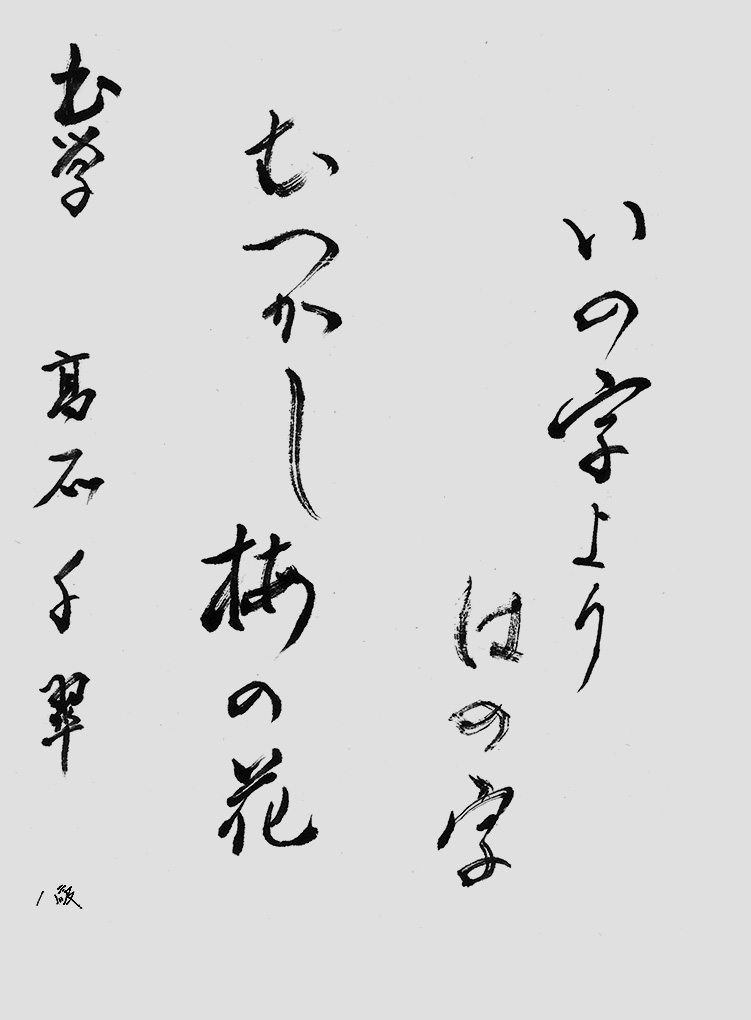 いの字より
はの字
むつかし梅の花
出学 高石千翠
1級